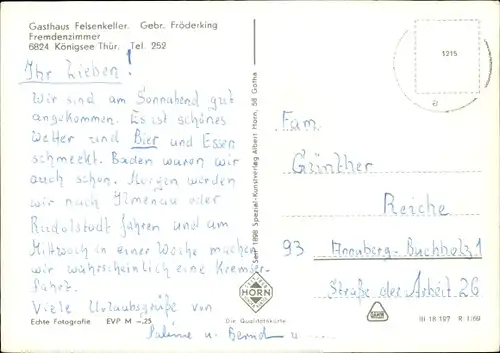 Gasthaus Felsenkeller. Gebr. Fröderking
Fremdenzimmer
6824 Königsee Thür. Tel. 252
Ihr Lieben!
Wir sind am Sonnabend gut
angekommen. Es ist schönes
Wetter und Bier und Essen
schmeckt. Baden waren wir
auch schon. Morgen werden
wir nach Ilmenau oder
Rudolstadt fahren und am
Mittwoch in einer Woche machen
wir wahrscheinlich eine Kremser-
fahrt.
Viele Urlaubsgrüße von
u. Bernd u
Echte Fotografie EVP M –.25
Serie 1898 Spezial-Kunstverlag Albert Horn, 58 Gotha
HORN
Die Qualitätskarte
1215
a
Fam.
Günther
Reiche
93 Annaberg-Buchholz 1
Straße der Arbeit 26
III 18 197 R 1/69